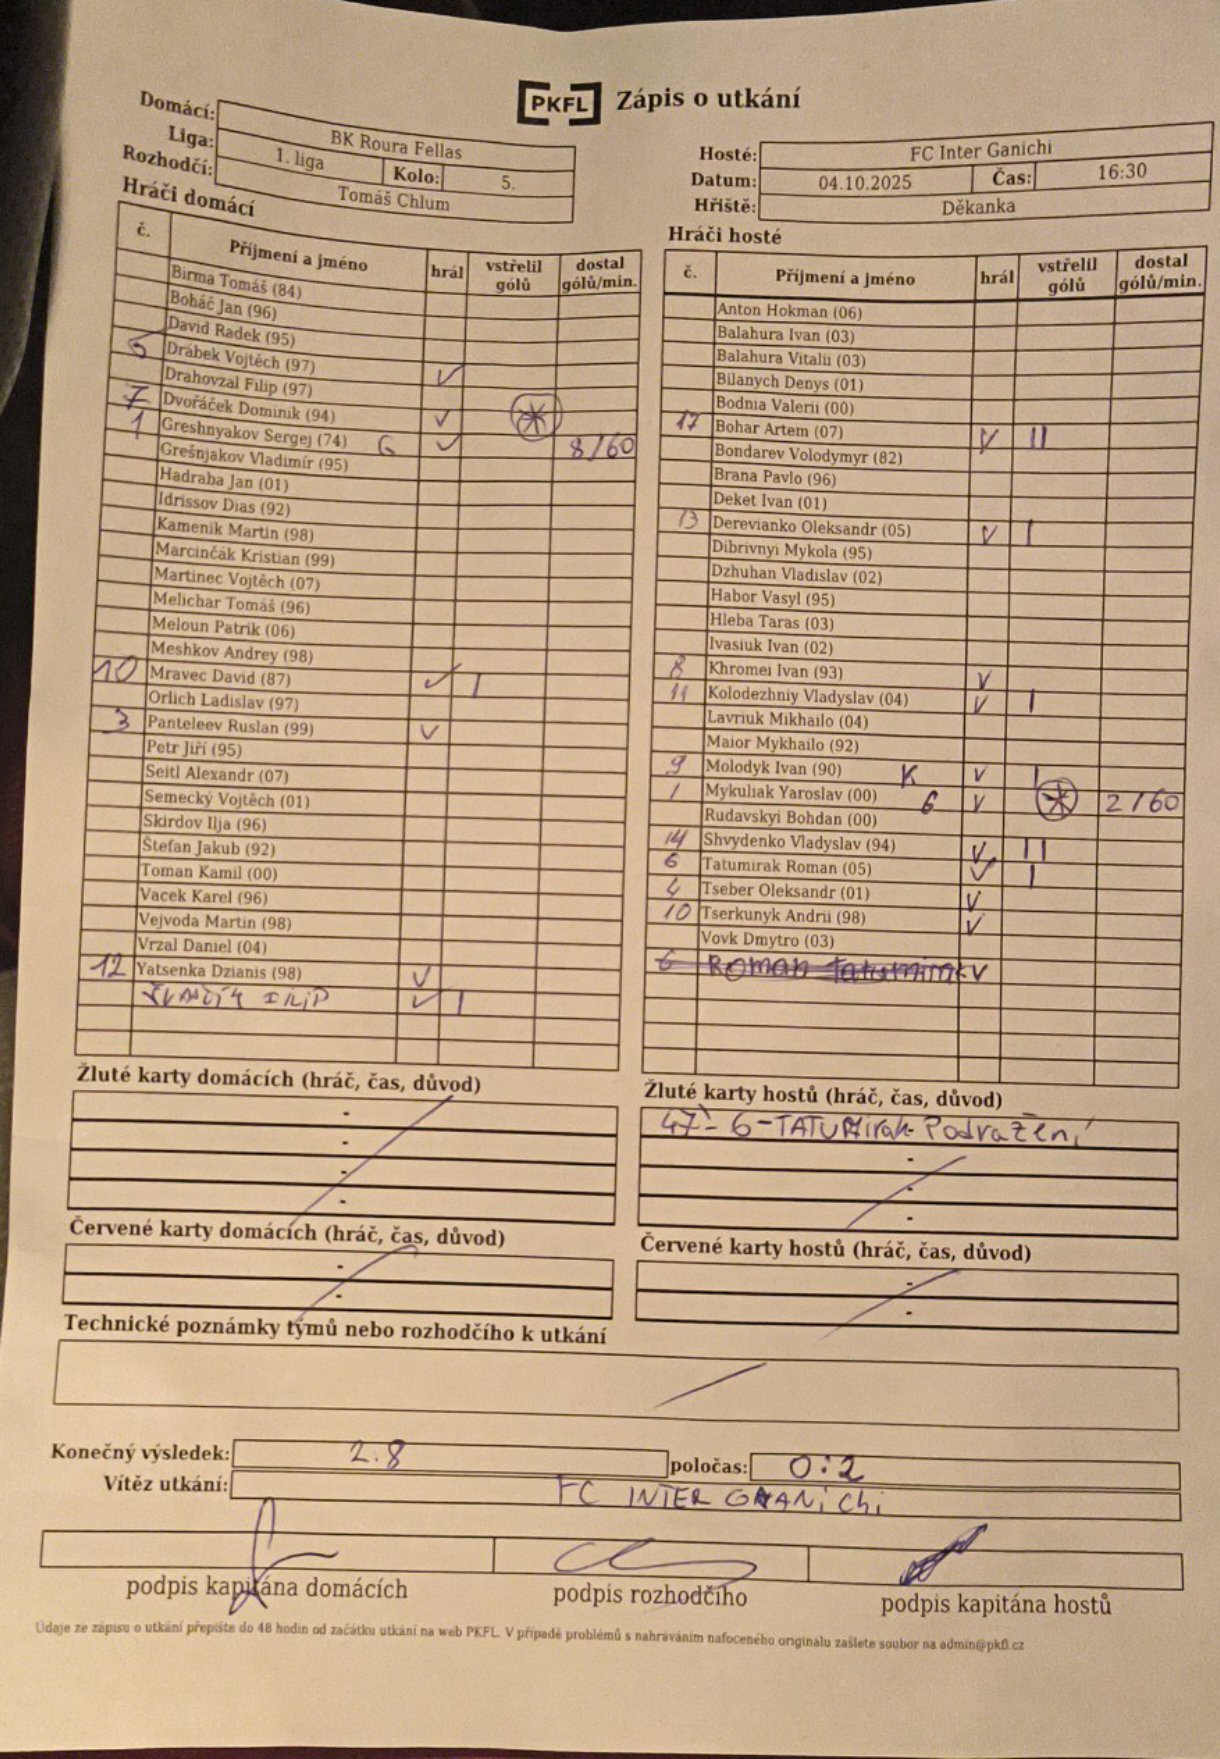 PKFL Zápis o utkání
Domácí: BK Roura Fellas
Liga: 1. liga Kolo: 5.
Rozhodčí: Tomáš Chlum
Hosté: FC Inter Ganichi
Datum: 04.10.2025 Čas: 16:30
Hřiště: Děkanka
Hráči domácí
č. Příjmení a jméno hrál vstřelil gólů dostal gólů/min.
Birma Tomáš (84)
Boháč Jan (96)
David Radek (95)
5 Drábek Vojtěch (97) V
Drahovzal Filip (97)
7 Dvořáček Dominik (94) V
1 Greshnyakov Sergej (74) G V 8/60
Grešnjakov Vladimír (95)
Hadraba Jan (01)
Idrissov Dias (92)
Kameník Martin (98)
Marcinčák Kristian (99)
Martinec Vojtěch (07)
Melichar Tomáš (96)
Meloun Patrik (06)
Meshkov Andrey (98)
10 Mravec David (87) V I
Orlich Ladislav (97)
3 Panteleev Ruslan (99) V
Petr Jiří (95)
Seitl Alexandr (07)
Semecký Vojtěch (01)
Skirdov Ilja (96)
Štefan Jakub (92)
Toman Kamil (00)
Vacek Karel (96)
Vejvoda Martin (98)
Vrzal Daniel (04)
12 Yatsenka Dzianis (98) V
V I
Hráči hosté
č. Příjmení a jméno hrál vstřelil gólů dostal gólů/min.
Anton Hokman (06)
Balahura Ivan (03)
Balahura Vitalii (03)
Bilanych Denys (01)
Bodnia Valerii (00)
17 Bohar Artem (07) V II
Bondarev Volodymyr (82)
Brana Pavlo (96)
Deket Ivan (01)
13 Derevianko Oleksandr (05) V I
Dibrivnyi Mykola (95)
Dzhuhan Vladislav (02)
Habor Vasyl (95)
Hleba Taras (03)
Ivasiuk Ivan (02)
8 Khromei Ivan (93) V
11 Kolodezhniy Vladyslav (04) V I
Lavriuk Mikhailo (04)
Maior Mykhailo (92)
9 Molodyk Ivan (90) K V I
1 Mykuliak Yaroslav (00) G V 2/60
Rudavskyi Bohdan (00)
14 Shvydenko Vladyslav (94) V II
6 Tatumirak Roman (05) V I
4 Tseber Oleksandr (01) V
10 Tserkunyk Andrii (98) V
Vovk Dmytro (03)
6 Roman Tatumirak V
Žluté karty domácích (hráč, čas, důvod)
-
-
-
-
Žluté karty hostů (hráč, čas, důvod)
47' - 6 - TATUMirak Podražení
-
-
-
Červené karty domácích (hráč, čas, důvod)
-
-
Červené karty hostů (hráč, čas, důvod)
-
-
Technické poznámky týmů nebo rozhodčího k utkání
Konečný výsledek: 2:8 poločas: 0:2
Vítěz utkání: FC INTER GANiChi
podpis kapitána domácích podpis rozhodčího podpis kapitána hostů
Údaje ze zápisu o utkání přepište do 48 hodin od začátku utkání na web PKFL. V případě problémů s nahráváním nafoceného originálu zašlete soubor na admin@pkfl.cz